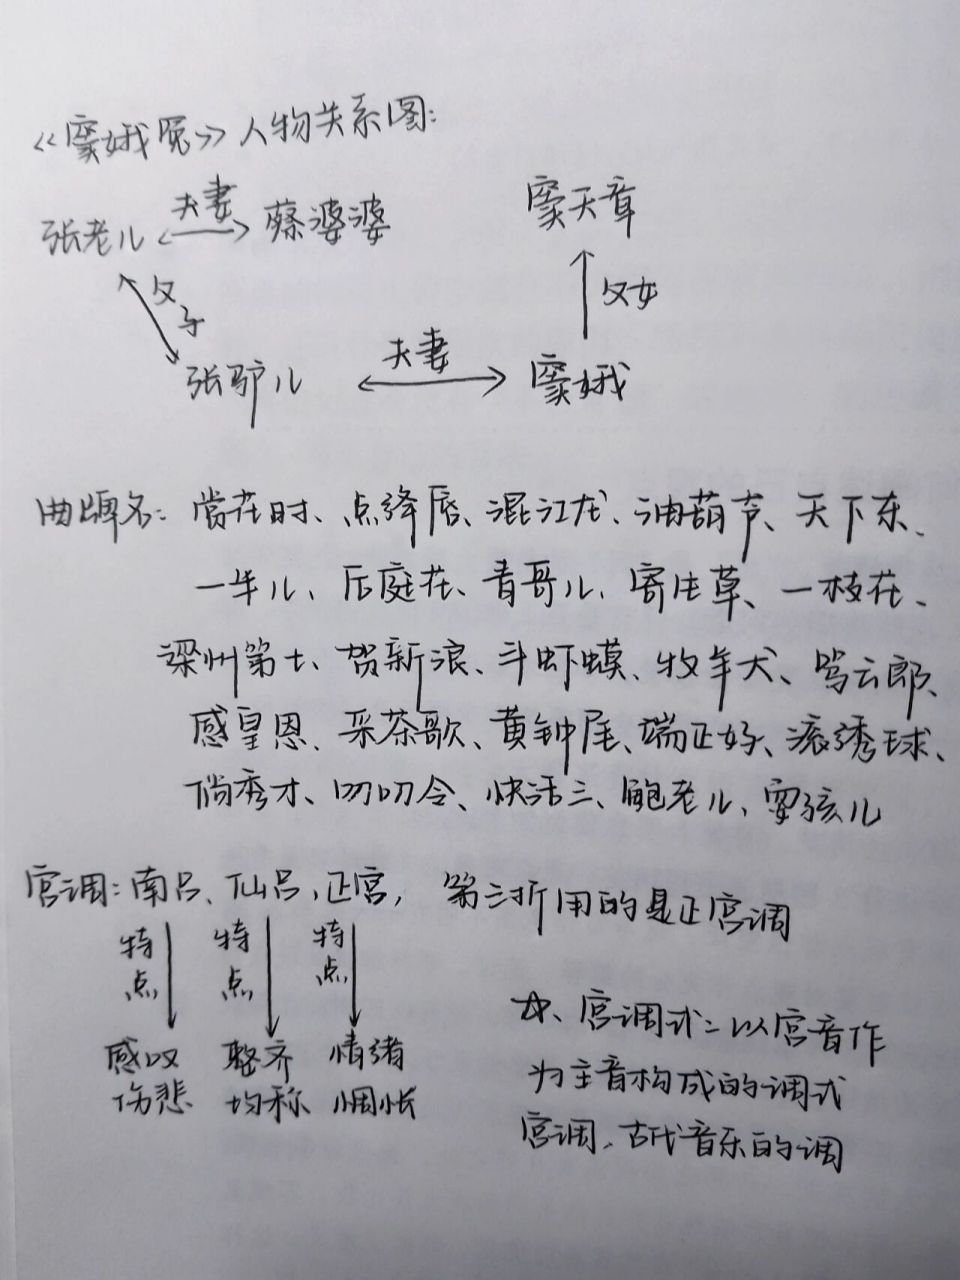 《窦娥冤》人物关系图:
张老儿 夫妻 蔡婆婆 窦天章
父子 父女
张驴儿 夫妻 窦娥
曲牌名: 赏花时、点绛唇、混江龙、油葫芦、天下乐、
一半儿、后庭花、青哥儿、寄生草、一枝花、
梁州第七、贺新浪、斗虾蟆、牧羊犬、骂云郎、
感皇恩、采茶歌、黄钟尾、端正好、滚绣球、
倘秀才、叨叨令、快活三、鲍老儿、耍孩儿
宫调: 南吕、仙吕、正宫, 第三折用的是正宫调
特点 特点 特点
感叹伤悲 整齐均称 情绪惆怅
宫调式: 以宫音作
为主音构成的调式
宫调、古代音乐的调